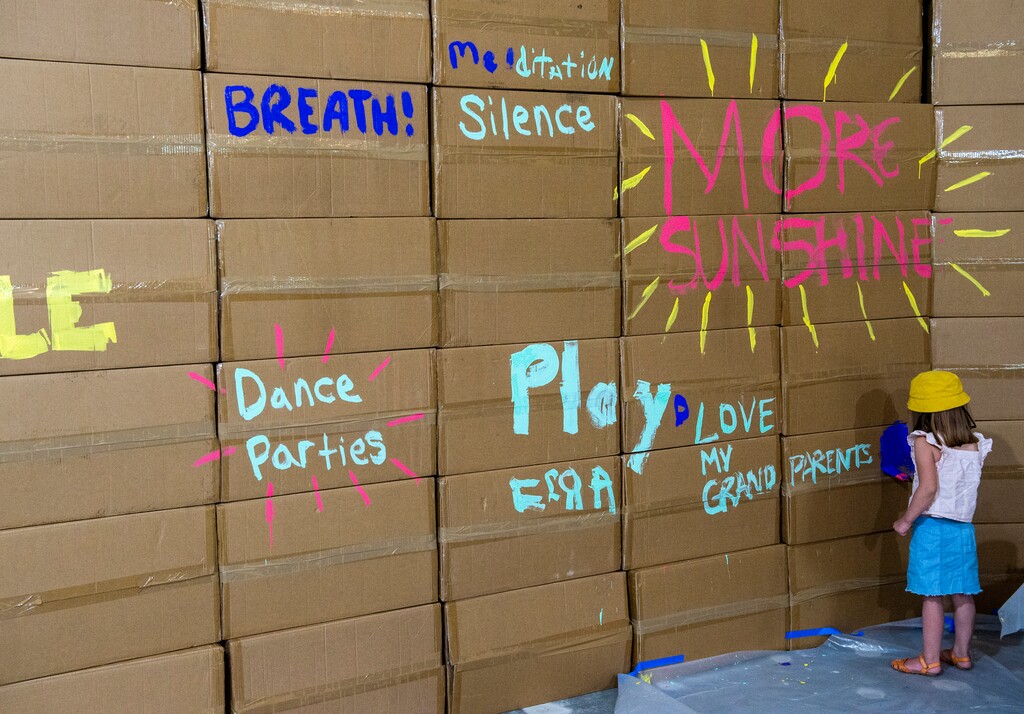 Meditation
BREATH!
Silence
MORE
SUNSHINE
LE
Dance
Parties
Play
LOVE
MY
GRAND PARENTS